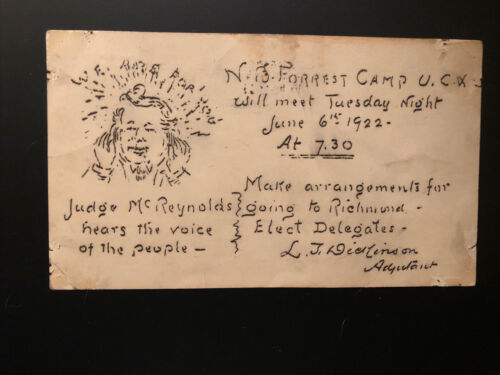 WE ARE FOR YOU
N. B. FORREST CAMP U.C.V
will meet Tuesday Night
June 6th 1922-
At 7.30
Judge McReynolds
hears the voice
of the people -
Make arrangements for
going to Richmond -
Elect Delegates -
L. T. Dickinson
Adjutant